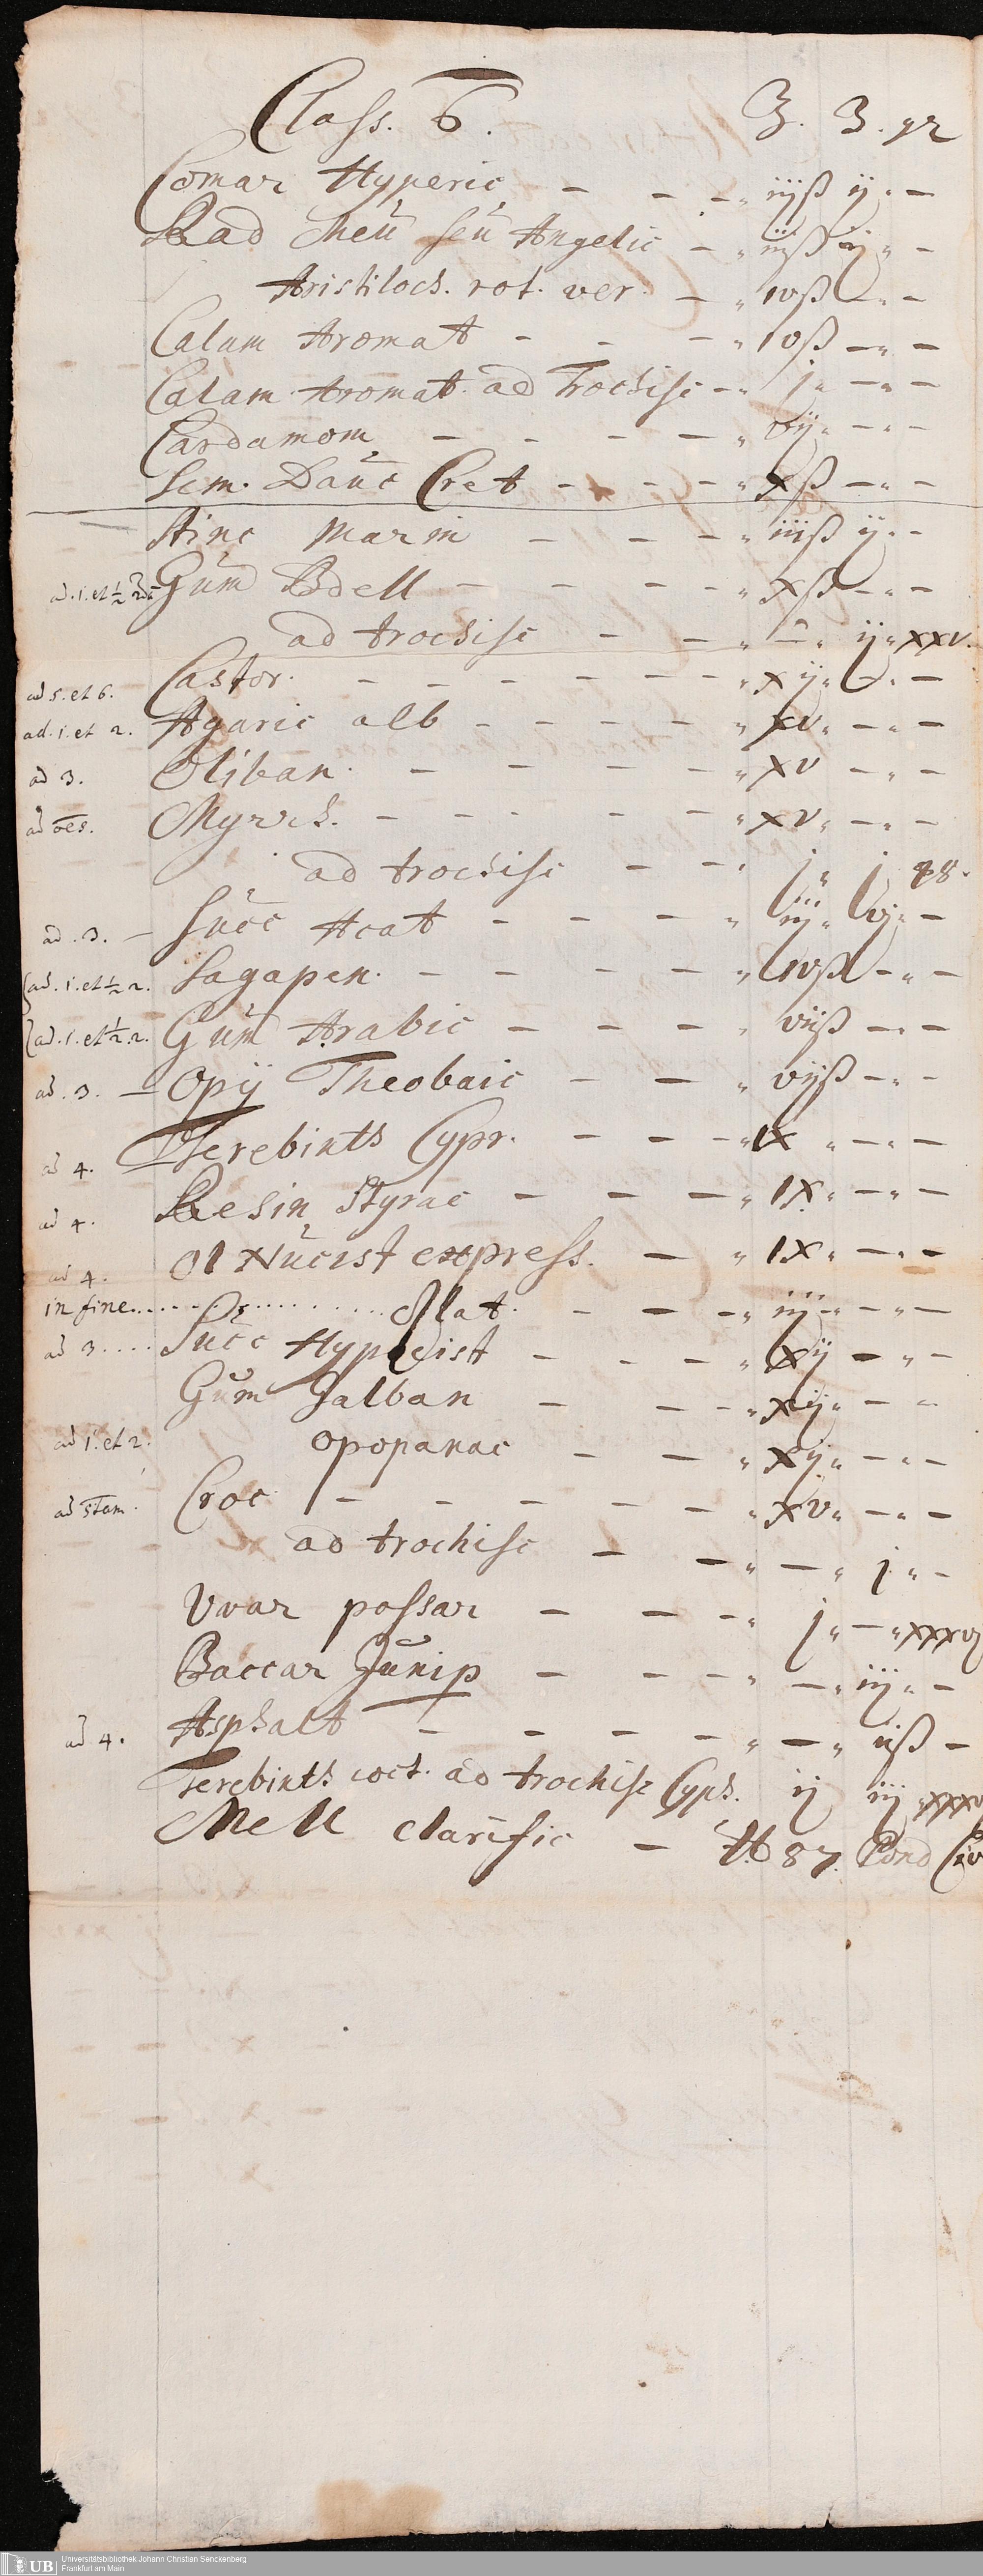 Class. 6. ℥. ʒ. gr
Comar Hyperic - - - " iijß ij " -
Rad Meu seu Angelic - " iijß ij " -
Aristiloch. rot. ver. - " ivß - " -
Calam Aromat - - - " ivß - " -
Calam Aromat. ad Trochisc - " j " - " -
Cardamom - - - - " vij " - " -
Sem. Dauc Cret - - - - " xß - " -
Hinc Marin - - - " iiiß ij " -
ad. 1. et ½ 2dæ Gum Bdell - - - - - " xß - " -
ad trochisc - - " - " ij " xxv.
ad 5. et 6. Castor. - - - - - - - " xij " - " -
ad. 1. et 2. Agaric alb - - - - - " xv " - " -
ad 3. Oliban. - - - - - " xv - " -
ad o͞es. Myrrh. - - - - - " xv " - " -
ad trochisc - - " j " j 48.
ad. 3. - Succ Acat - - - - " iij " vj " -
ad. 1. et ½ 2. Sagapen. - - - - - " ivß - " -
ad. 1. et ½ 2. Gum Arabic - - - " viiß - " -
ad. 3. - Opij Thebaic - - " vijß - " -
ad 4. Terebinth Cypr. - - - " ix " - " -
ad 4. Resin Styrac - - - " ix " - " -
ad 4. Ol Nucist express. - " ix " - " -
in fine........ Slat. - - - " iij " - " -
ad 3.... Succ Hypocist - - - " xij - " -
Gum Galban - - - " xij " - "
ad 1. et 2. Opopanac - - " xij " - " -
ad stom. Croc - - - - - - " xv " - " -
ad trochisc - - " - " j " -
Uvar passar - - - " j " - " xxxvj
Baccar Junip - - - - " - " iij " -
ad 4. Asphalt - - - - - " - " iiß -
Terebinth coct. ad trochisc Cyph. ij iij " xxxv
Mell clarific - ℔ 87. Pond Civ
UB Universitätsbibliothek Johann Christian Senckenberg
Frankfurt am Main